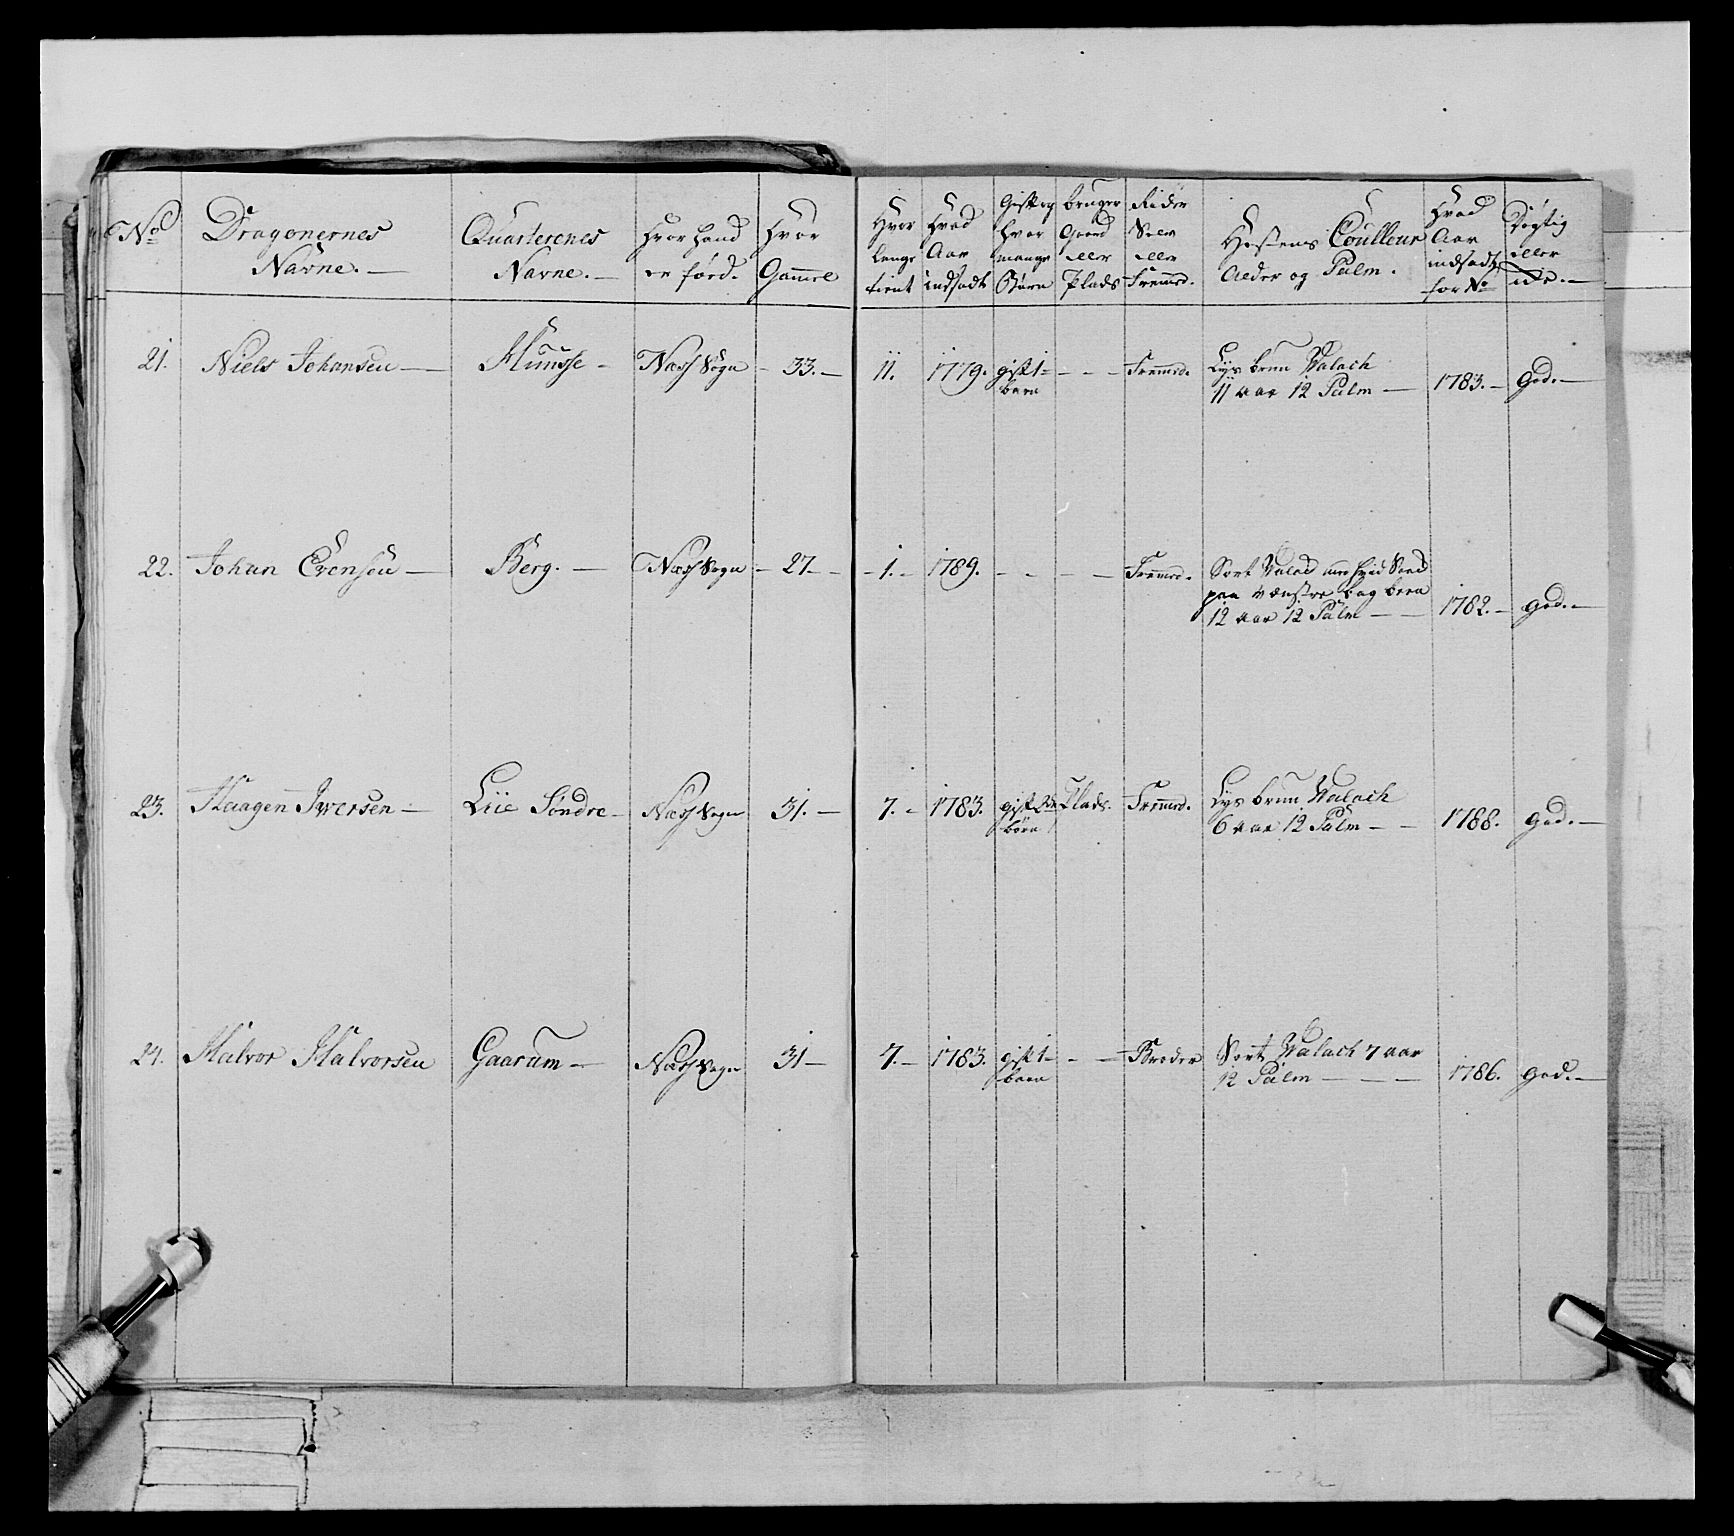 No | Dragonernes Navne. — | Quarterenes Navne. — | Hvor hand er föed. | Hvor Gammel | Hvor lenge tient | Hvad Aar indsadt | Gift og hvor mange Börn | bruger Gaard eller Plads | Rider Selv eller Fremmed. | Hestens Coulleur Alder og Palm. | Hvad Aar indsadt for No | Dygtig eller
21. | Niels Johansen — | Huusse - | Næss Sogn | 33. — | 11. | 1779. | gift 1 barn | - - - | Fremmed. | Lys brun Walach 11 aar 12 Palm — | 1783. — | God. —
22. | Johan Evensen — | Berg. — | Næss Sogn | 27 — | 1. - | 1789. | - - | - — | Fremmed. | Sort Valach med hvid Soed paa vænstre bag been 12 aar 12 Palm — — | 1782. — | god. —
23. | Haagen Iwersen — | Liie Söndre — | Næss Sogn | 31. — | 7. - | 1783. | gift 2de börn | Plads. | Fremmed. | Lys brun Walach 6 aar 12 Palm — — | 1788. | god. —
24. | Halvor Halvorsen | Gaarum — | Næss Sogn | 31 — | 7. — | 1783. | gift 1 barn | - — | Broder | Sort Walach 7 aar 12 Palm — — — | 1786. | god. —